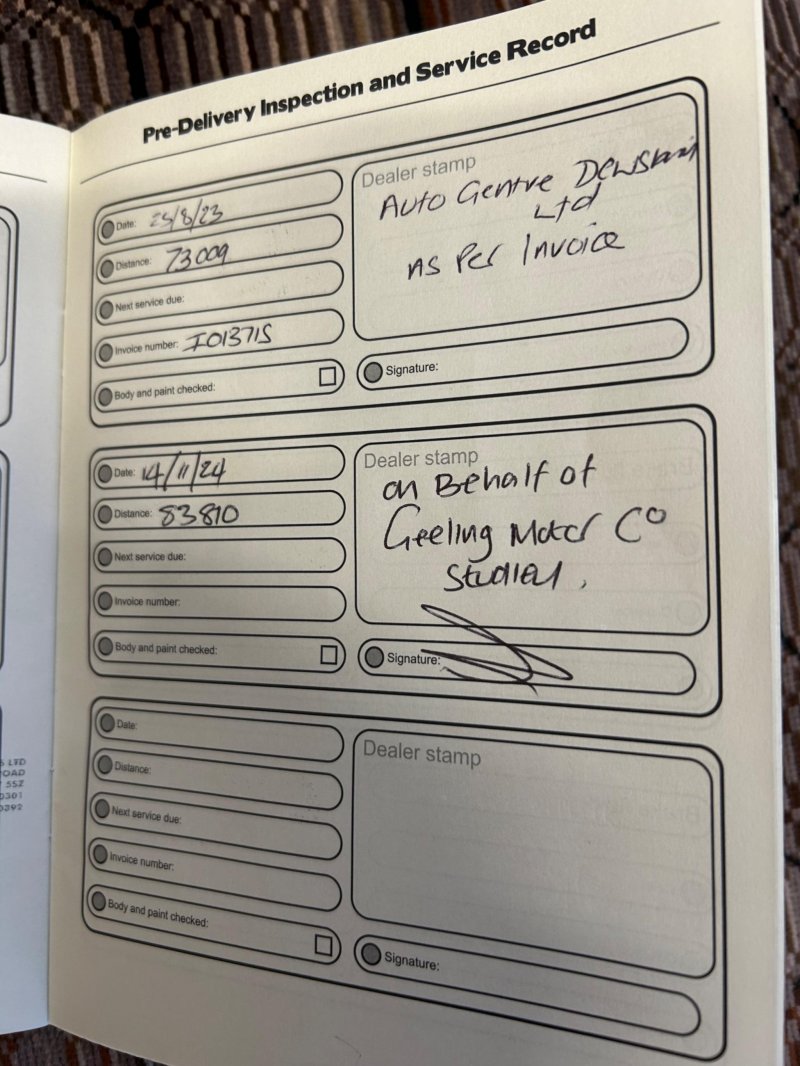 Pre-Delivery Inspection and Service Record
Date: 25/8/23
Distance: 73009
Next service due:
Invoice number: I013715
Body and paint checked:
Dealer stamp
Auto Centre
Ltd
As Per Invoice
Signature:
Date: 14/11/24
Distance: 83810
Next service due:
Invoice number:
Body and paint checked:
Dealer stamp
on Behalf of
Motor Co
Signature:
Date:
Distance:
Next service due:
Invoice number:
Body and paint checked:
Dealer stamp
Signature:
LTD